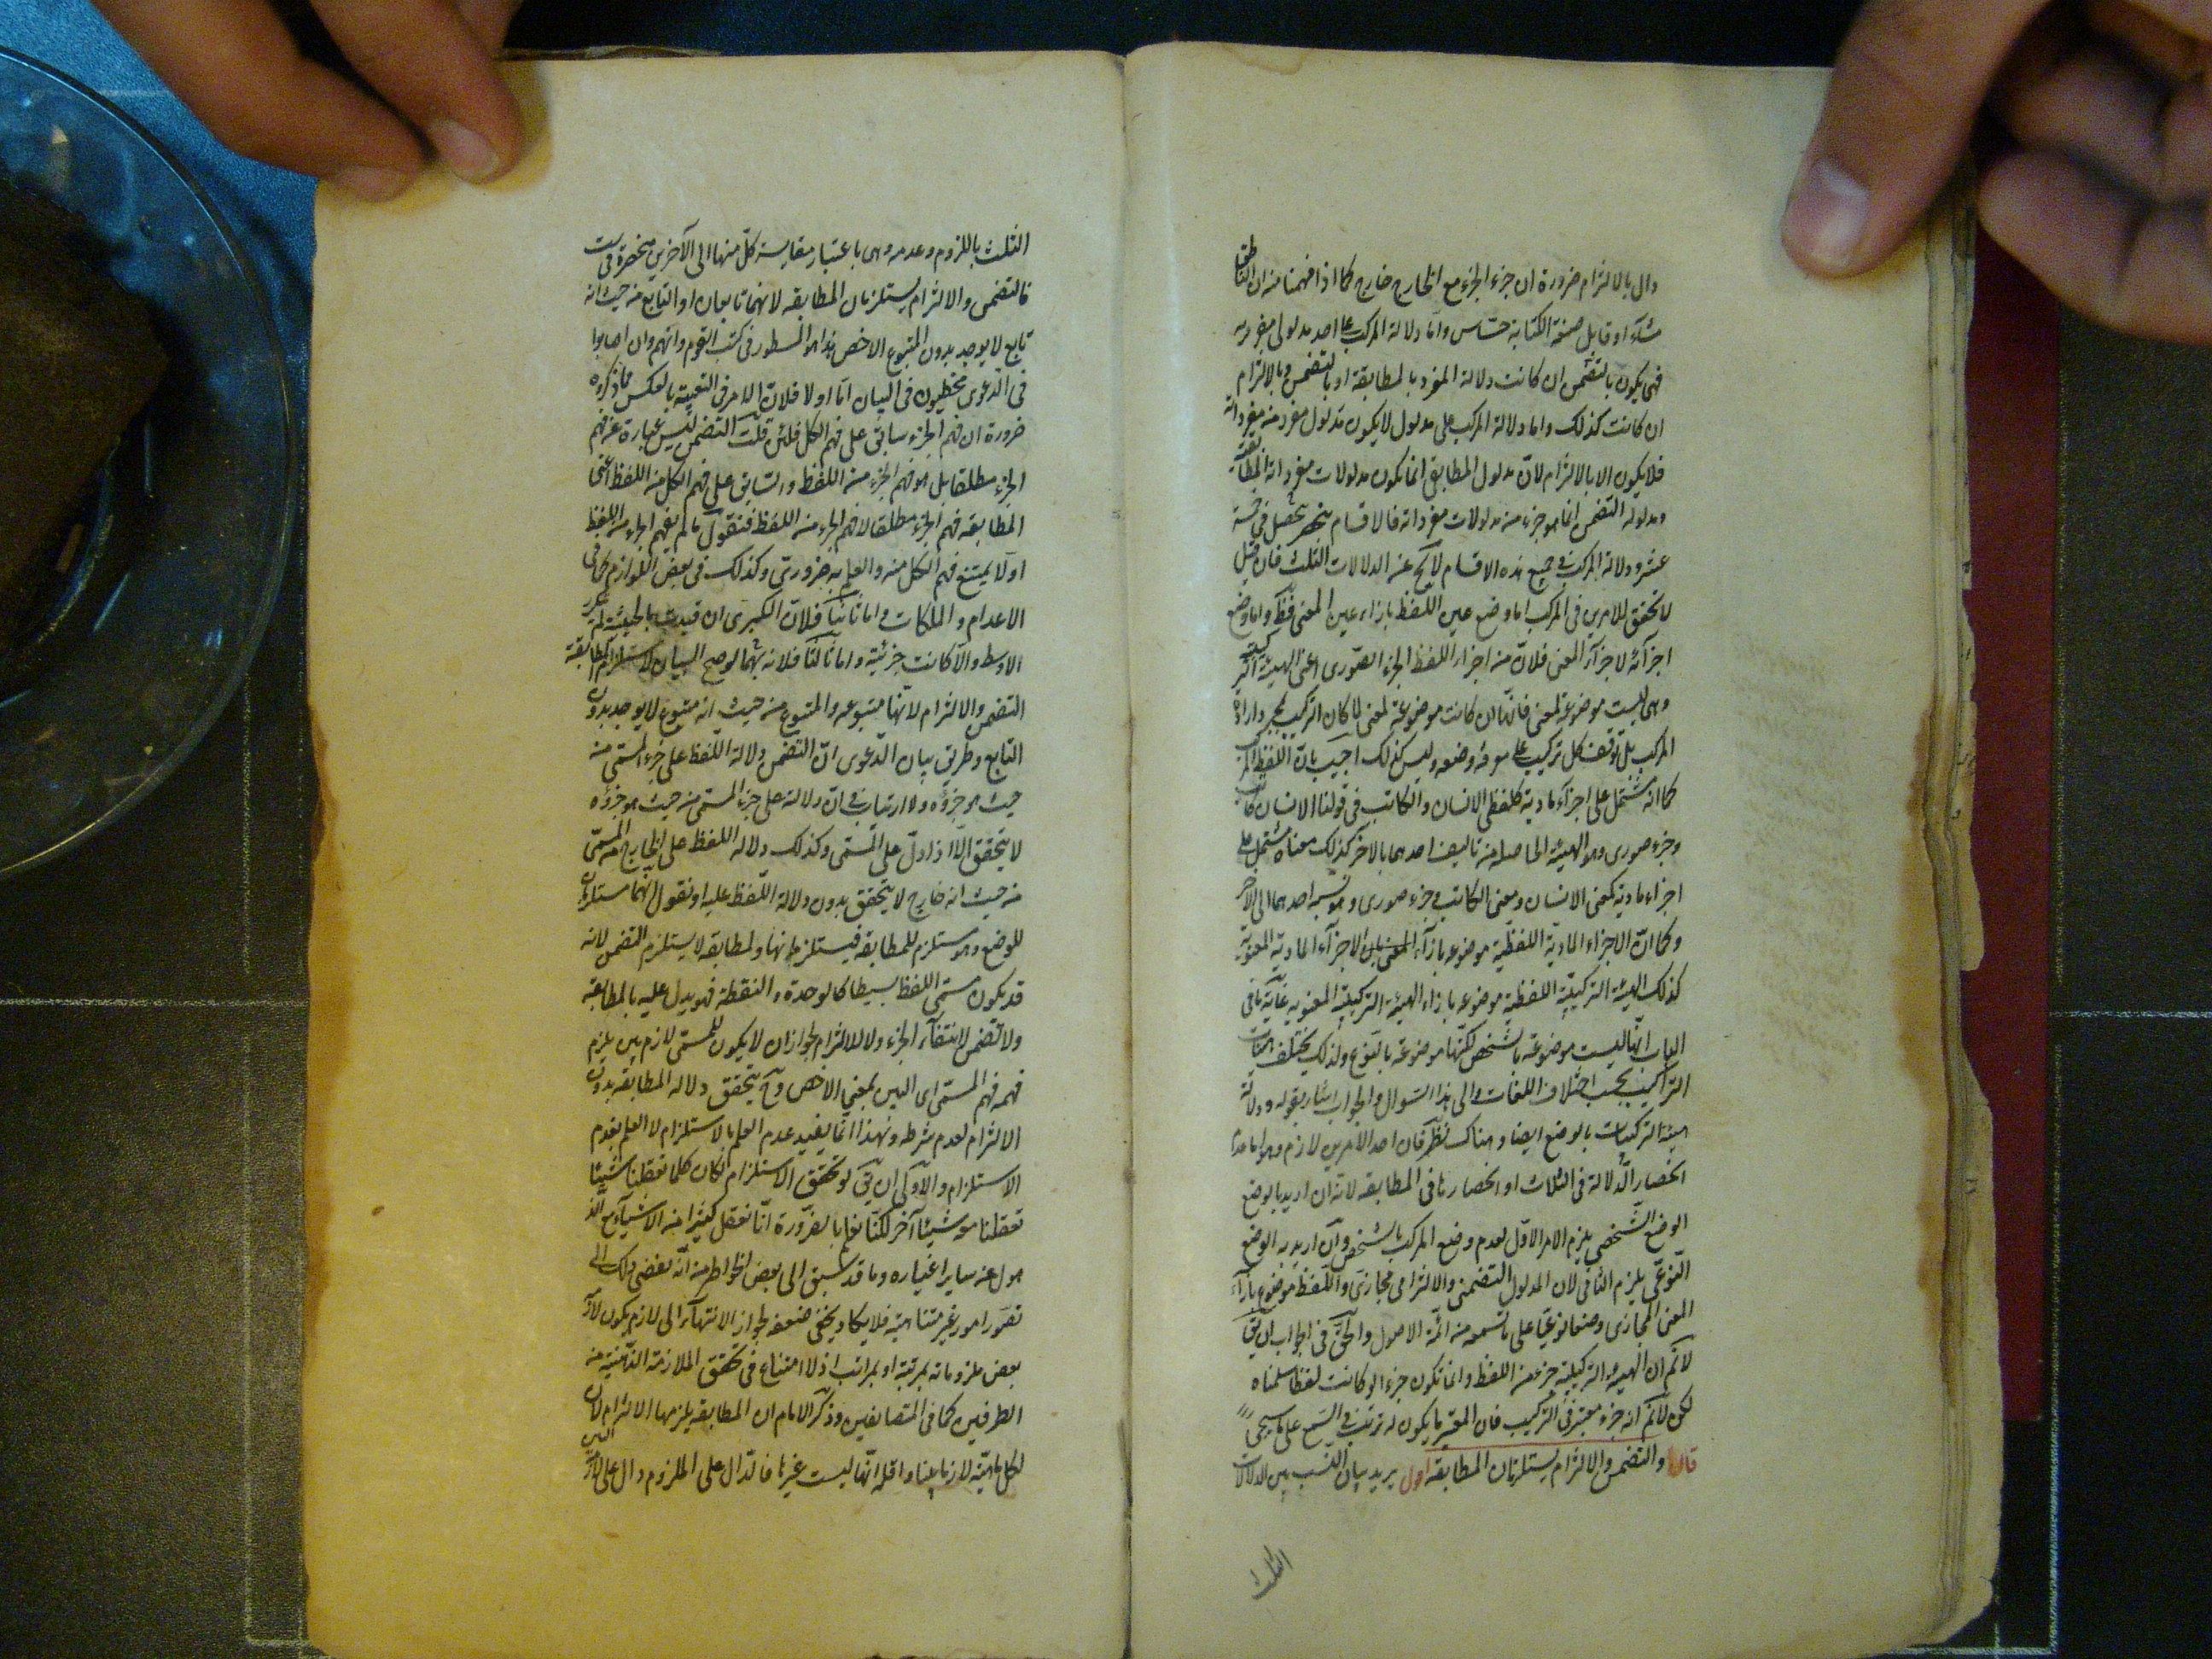 دال بالالتزام ضرورة ان جزء الجزء مع الخارج خارج كما اذا فهمنا من ان الناطق
او قابل صنعة الكتابة حساس واما دلالة المركب على احد مدلولى مفرديه
فهى يكون بالتضمن ان كانت دلالة المفرد بالمطابقة او بالتضمن وبالالتزام
ان كانت كذلك واما دلالة المركب على مدلول لا يكون مدلول مفرد من مفرداته
فلا يكون الا بالالتزام لان مدلول المطابقى انما يكون مدلولات مفرداته المطابقية
ومدلوله التضمن انما هو جزء من مدلولات مفرداته فالاقسام تحصل فى خمسة
عشر ودلالة المركب فى جميع هذه الاقسام لا يخ عن الدلالات الثلث فان قيل
لا تحقق للامرين فى المركب اما وضع عين اللفظ بازاء عين المعنى فظ واما وضع
اجزآئه لاجزآء المعنى فلان من اجزاء اللفظ الجزء الصورى اعنى الهيئة التركيبية
وهى ليست موضوعة لمعنى فانها ان كانت موضوعة لمعنى لما كان التركيب
المركب بل توقف كل تركيب على معرفة وضعه وليس كذلك اجيب بان اللفظ المركب
كما انه مشتمل على اجزآء مادية كلفظى الانسان والكاتب فى قولنا الانسان كاتب
وجزء صورى وهو الهيئة الحاصلة من تاليف احدهما بالاخر كذلك معناه مشتمل على
اجزاء مادية كمعنى الانسان ومعنى الكاتب وجزء صورى وهو نسبة احدهما الى الاخر
وكما ان الاجزاء المادية اللفظية موضوعه بازآء الاجزآء المادية المعنوية
كذلك الهيئة التركيبية اللفظية موضوعه بازاء الهيئة التركيبية المعنويه غاية ما فى
الباب انها ليست موضوعة بالشخص لكنها موضوعة بالنوع ولذلك يختلف هيئات
التراكيب بحسب اختلاف اللغات والى هذا السوال والجواب اشار بقوله ودلالة
هيئة التركيبات بالوضع ايضا وهناك نظر فان احد الامرين لازم وهو اما عدم
انحصار الدلالة فى الثلاث او انحصارها فى المطابقه لانه ان اريد بالوضع
الوضع الشخصى يلزم الامر الاول لعدم وضع المركب بالشخص وان اريد به الوضع
النوعى يلزم الثانى لان المدلول التضمنى والالتزامى مجازى واللفظ موضوع بازآء
المعنى المجازى وضعا نوعيا على ما تسمعه من ائمة الاصول والحق فى الجواب ان يق
لا نم ان الهيئة التركيبية جزء من اللفظ وانما تكون جزءا لو كانت لفظا سلمناه
لكن لا نم انه جزء معتبر فى التركيب فان المعتبر ما يكون له ترتيب فى السمع على ما سيجئ
قال والتضمن والالتزام يستلزمان المطابقة اقول يريد بيان النسب بين الدلالات
الثلث
الثلث باللزوم وعدمه وهى باعتبار مقايسة كل منها الى الآخرين منحصرة فى ست
فالتضمن والالتزام يستلزمان المطابقه لانهما تابعان او التابع من حيث انه
تابع لا يوجد بدون المتبوع الاخص هذا هو المسطور فى كتب القوم وانهم وان اصابوا
فى الدعوى مخطئيون فى البيان اما اولا فلان الامر فى التبعية بالعكس مما ذكروه
ضرورة ان فهم الجزء سابق على فهم الكل فلئن قلت التضمن ليس عبارة عن فهم
الجزء مطلقا بل هو فهم الجزء من اللفظ والسابق على فهم الكل من اللفظ اعنى
المطابقه فهم الجزء مطلقا لا فهم الجزء من اللفظ فنقول ما لم يفهم الجزء من اللفظ
اولا يمتنع فهم الكل منه والعلم به ضرورى وكذلك فى بعض اللوازم كما فى
الاعدام والملكات واما ثانيا فلان الكبرى ان قيدت بالحيثية لم يتكرر
الاوسط والا كانت جزئية واما ثالثا فلانه لو صح البيان لاستلزام المطابقة
التضمن والالتزام لانها متبوعه والمتبوع من حيث انه متبوع لا يوجد بدون
التابع وطريق بيان الدعوى ان التضمن دلالة اللفظ على جزء المسمى من
حيث هو جزؤه ولا ارتياب فى ان دلالته على جزء المسمى من حيث هو جزؤه
لا يتحقق الا اذا دل على المسمى وكذلك دلاله اللفظ على الخارج عن المسمى
من حيث انه خارج لا يتحقق بدون دلالة اللفظ عليه او نقول انهما مستلزمان
للوضع وهو مستلزم للمطابقه فيستلزمانها والمطابقه لا يستلزم التضمن لانه
قد يكون مسمى اللفظ بسيطا كالوحدة والنقطة فهو يدل عليه بالمطابقة
ولا تضمن لانتفآء الجزء ولا الالتزام لجواز ان لا يكون للمسمى لازم بين يلزم
فهمه فهم المسمى اى البين بمعنى الاخص وح يتحقق دلاله المطابقه بدون
الالتزام لعدم شرطه وهذا انما يفيد عدم العلم بالاستلزام لا العلم بعدم
الاستلزام والاولى ان يق لو تحقق الاستلزام لكان كلما تعقلنا شيئا
تعقلنا معه شيئا آخر لكنا نعلم بالضرورة انا نعقل كثيرا من الاشيآء مع الذ
هول عن ساير اغياره وما قد سبق الى بعض الخواطر من انه يفضى ذلك الى
تصور امور غير متناهية فلا يكاد يخفى ضعفه لجواز الانتهآء الى لازم يكون لازم
بعض ملزوماته بمرتبة او بمراتب اذ لا امتناع فى تحقق الملازمة الذهنية من
الطرفين كما فى المتضايفين وذكر الامام ان المطابقه يلزمها الالتزام لان
لكل ماهية لازما بينا واقله انها ليست غيرها فالدال على الملزوم دال على لازم البين